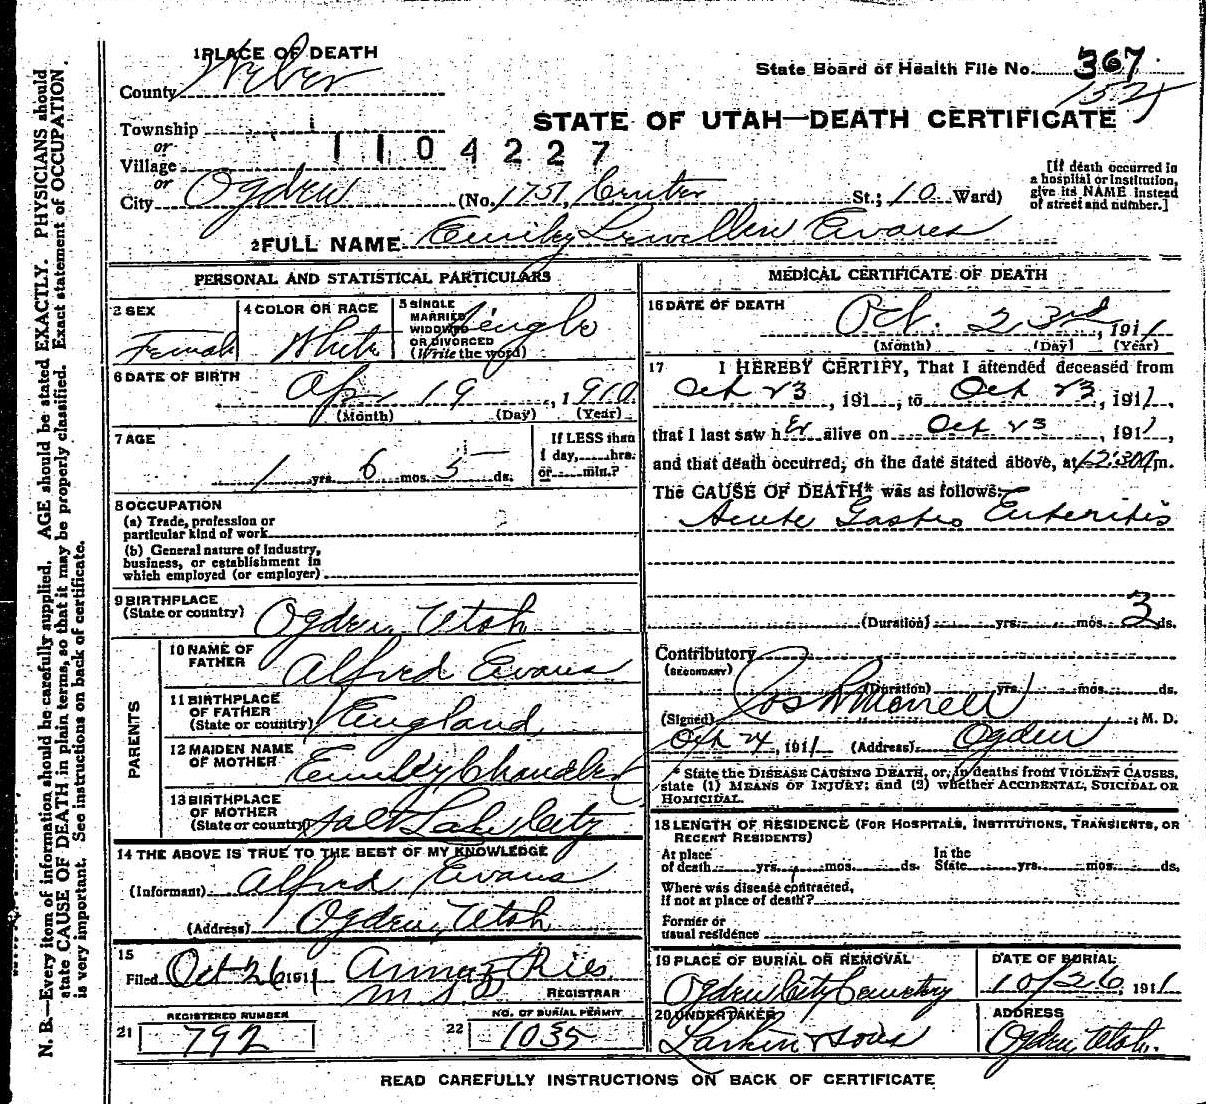 1 PLACE OF DEATH
County Weber
State Board of Health File No. 367
152
Township
or
Village
1104227
STATE OF UTAH—DEATH CERTIFICATE
or
City Ogden (No. 1751, Center St.; 10 Ward)
[If death occurred in
a hospital or institution,
give its NAME instead
of street and number.]
2 FULL NAME Emily Lewellen Evans
PERSONAL AND STATISTICAL PARTICULARS
3 SEX
Female
4 COLOR OR RACE
White
5 SINGLE
MARRIED
WIDOWED
OR DIVORCED
(Write the word)
Single
6 DATE OF BIRTH
Apr 19, 1910
(Month) (Day) (Year)
7 AGE
1 yrs. 6 mos. 5 ds.
If LESS than
1 day, hrs.
or min.?
8 OCCUPATION
(a) Trade, profession or
particular kind of work
(b) General nature of industry,
business, or establishment in
which employed (or employer)
9 BIRTHPLACE
(State or country) Ogden, Utah
PARENTS
10 NAME OF
FATHER Alfred Evans
11 BIRTHPLACE
OF FATHER
(State or country) England
12 MAIDEN NAME
OF MOTHER Emily Chandler
13 BIRTHPLACE
OF MOTHER
(State or country) Salt Lake City
14 THE ABOVE IS TRUE TO THE BEST OF MY KNOWLEDGE
(Informant) Alfred Evans
(Address) Ogden, Utah
15
Filed Oct 26 1911 Anna Ries
REGISTRAR
REGISTERED NUMBER
21 792
NO. OF BURIAL PERMIT
22 1035
MEDICAL CERTIFICATE OF DEATH
16 DATE OF DEATH
Oct. 23rd, 1911
(Month) (Day) (Year)
17 I HEREBY CERTIFY, That I attended deceased from
Oct 23, 191, to Oct 23, 1911,
that I last saw her alive on Oct 23, 1911,
and that death occurred, on the date stated above, at 12:30 m.
The CAUSE OF DEATH* was as follows:
Acute Gastro Enteritis
(Duration) yrs. mos. 3 ds.
Contributory
(SECONDARY)
(Duration) yrs. mos. ds.
(Signed) Jos R Morrell, M. D.
Oct 24, 1911 (Address) Ogden
* State the DISEASE CAUSING DEATH, or, in deaths from VIOLENT CAUSES,
state (1) MEANS OF INJURY; and (2) whether ACCIDENTAL, SUICIDAL OR
HOMICIDAL.
18 LENGTH OF RESIDENCE (FOR HOSPITALS, INSTITUTIONS, TRANSIENTS, OR
RECENT RESIDENTS)
At place
of death yrs. mos. ds.
In the
State yrs. mos. ds.
Where was disease contracted,
if not at place of death?
Former or
usual residence
19 PLACE OF BURIAL OR REMOVAL
Ogden City Cemetery
DATE OF BURIAL
10/26, 1911
20 UNDERTAKER
Larkin & Sons
ADDRESS
Ogden, Utah.
READ CAREFULLY INSTRUCTIONS ON BACK OF CERTIFICATE
N. B.—Every item of information should be carefully supplied. AGE should be stated EXACTLY. PHYSICIANS should
state CAUSE OF DEATH in plain terms, so that it may be properly classified. Exact statement of OCCUPATION
is very important. See instructions on back of certificate.